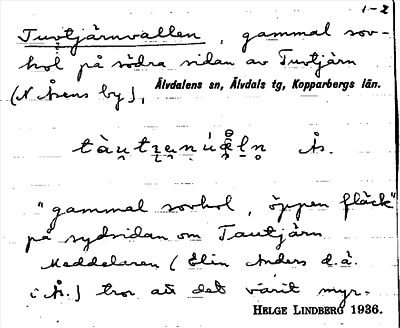 1-2
Tuvtjärnvallen, gammal sov-
hol på södra sidan av Tuvtjärn
(N Åsens by),
Älvdalens sn, Älvdals tg, Kopparbergs län.
Ås.
"gammal sovhol, öppen fläck"
på sydsidan om Tautjärn
Meddelaren (Elin Anders d.ä.
i Ås.) tror att det varit myr.
HELGE LINDBERG 1936.